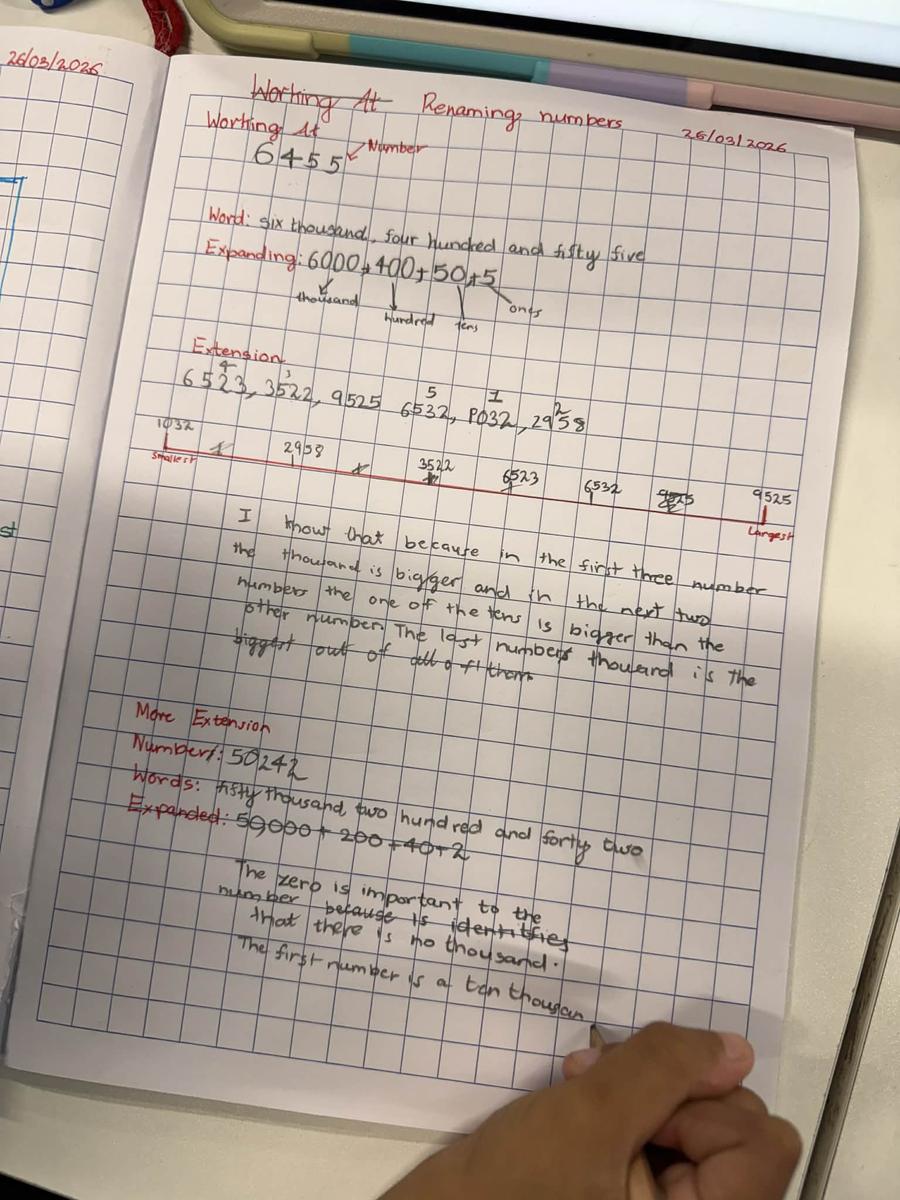 26/03/2026
Working At Renaming numbers
26/03/2026
Working At
6455
Number
Word: six thousand, four hundred and fifty five
Expanding: 6000+400+50+5
thousand
hundred
tens
ones
Extension
4 3 5 1 2
6523, 3522, 9525 6532, 1032, 2958
1032 2958 3522 6523 6532 9525
smallest
Largest
I know that because in the first three number
the thousand is bigger and in the next two
numbers the one of the tens is bigger than the
other number. The last numbers thousand is the
biggest out of all of them
More Extension
Number: 50242
Words: fifty thousand, two hundred and forty two
Expanded: 50000+200+40+2
The zero is important to the
number because is identifies
that there is no thousand.
The first number is a ten thousan
st